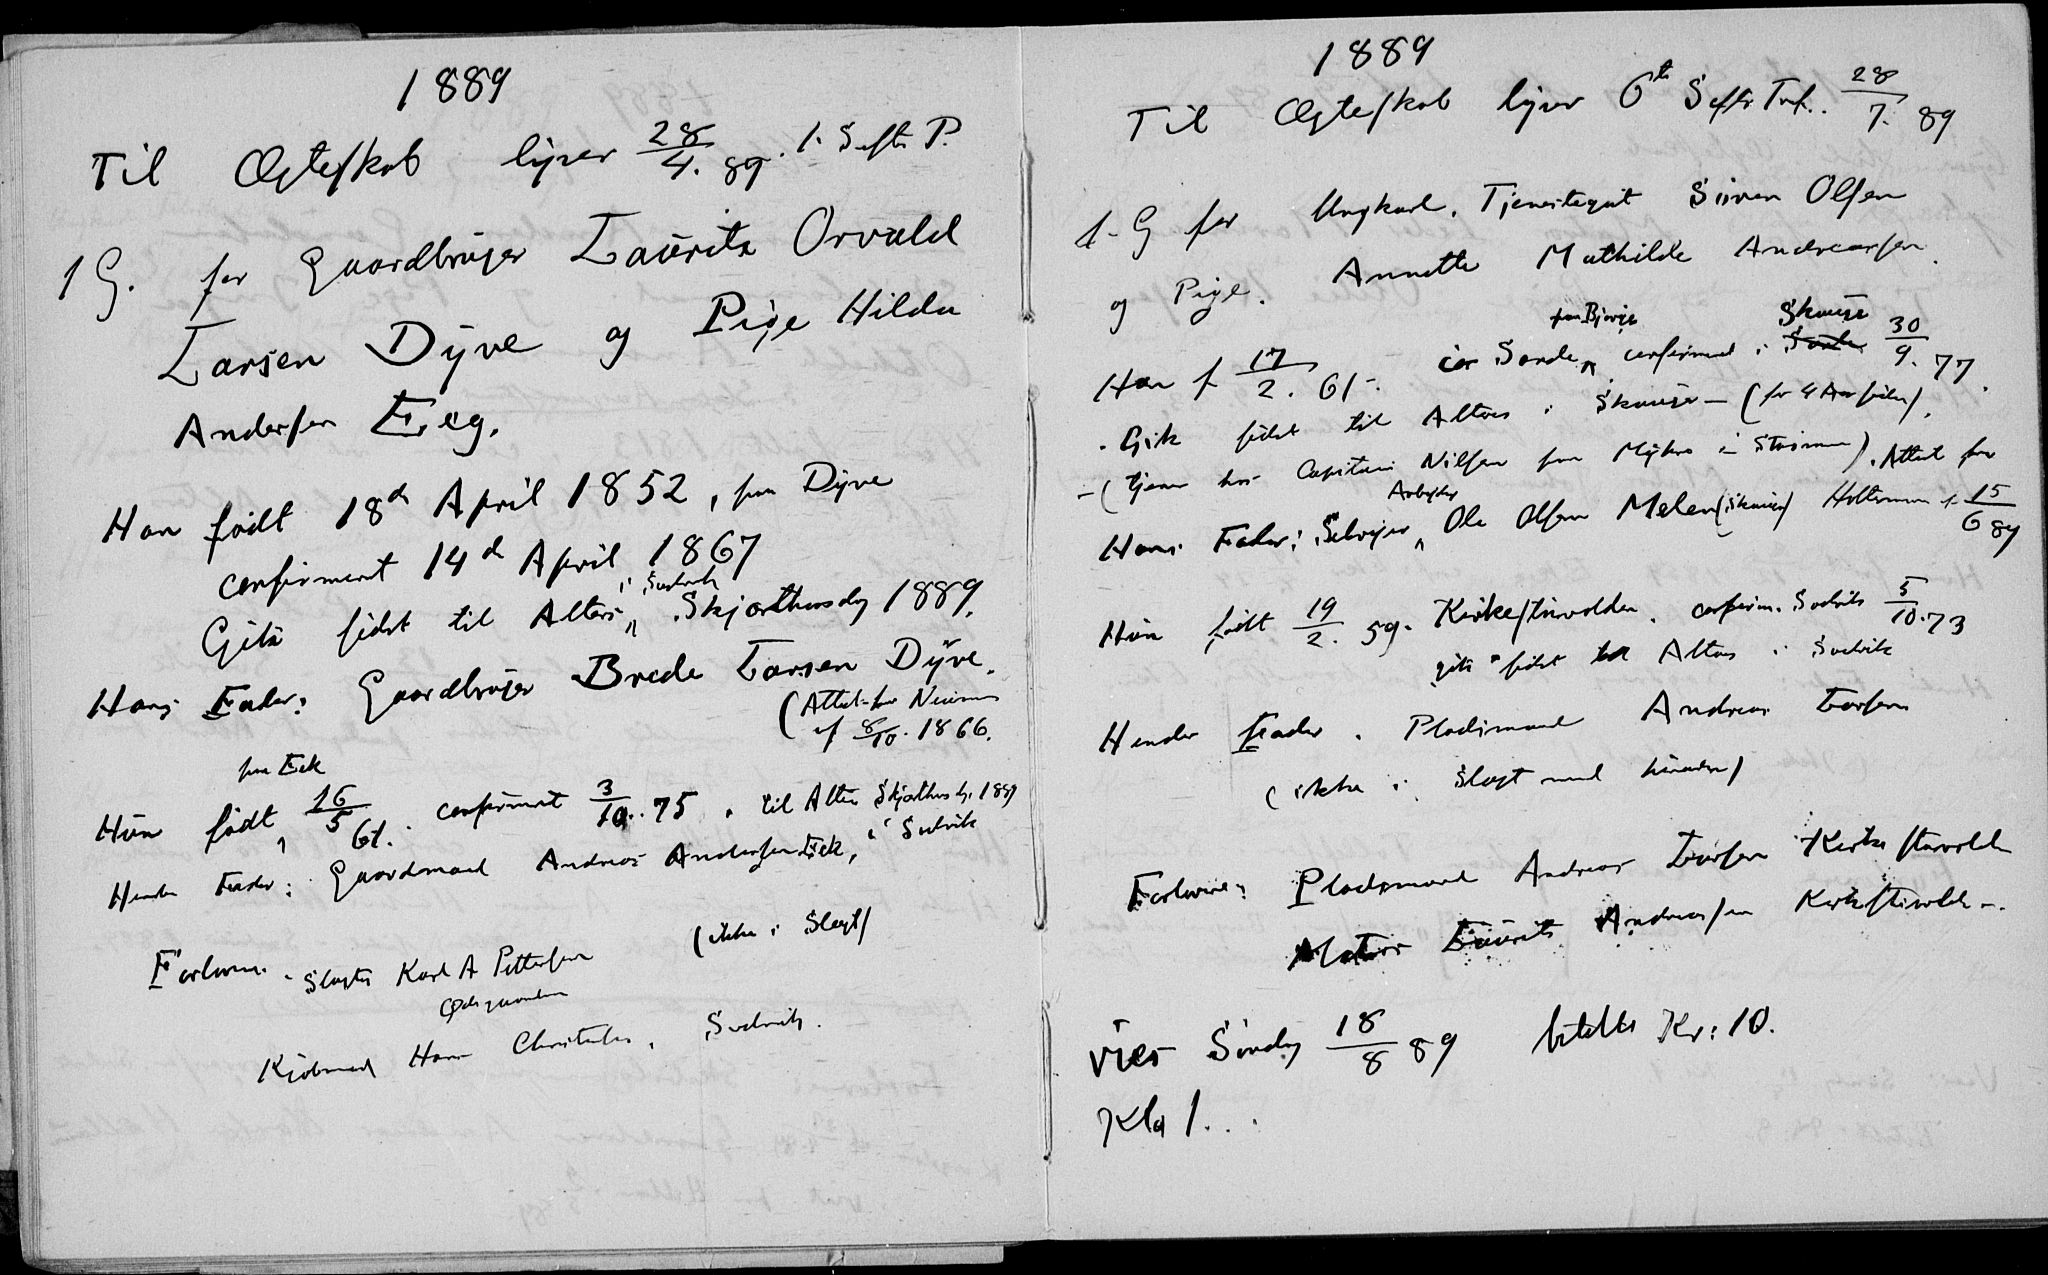 1889
Til Ægteskab lyses 28/4. 89. 1. S. eft. P.
1 G. for Gaardbruger Laurits Orvald
Larsen Dyve og Pige Hilda
Andersen Eeg.
Han født 18de April 1852, fra Dyve
confirmeret 14de April 1867
i Sudvik
Gik sidst til Alters Skjærthorsdag 1889.
Hans Fader: Gaardbruger Brede Larsen Dyve.
(Attest for
af 8/10. 1866.
fra Eek
Hun født 16/5 61. confirmeret 3/10. 75. til Alter Skjærthorsd. 1889
Hendes Fader: Gaardmand Andreas Andersen Eek, i Sudvik
(ikke i Slægt)
Forlovere. Slagter Karl A Pettersen
Kjøbmand Hans Christensen, Sudvik.
1889
Til Ægteskab lyses 6te S eftr Tref. 28/7. 89
1. G for Ungkarl, Tjenestegut Søren Olsen
og Pige. Annette Mathilde Andreassen.
fra Bjerge Skauge
Han f. 17/2. 61. Sande, confirmeret i Sande 30/9. 77.
Gik sidst til Alters i Skauge (for 4 Aar siden),
(tjener hos Capitain Nilsen paa Mykre i Strømm). Attest fra
Arbejder
Hans Fader: Selvejer Ole Olsen Melen (Skauge) Holterman f. 15/6 89
Hun født 19/2. 59. Kirkestuvolden. confirm. Sudvik 5/10. 73
gik sidst til Alters i Sudvik
Hendes Fader. Pladsmand Andreas Larsen
(ikke i Slægt med hinanden)
Forlovere: Pladsmand Andreas Larsen Kirkestuvolden
Matros Laurits Andreassen Kirkestuvolden.
Vies Søndag 18/8 89 betalte Kr: 10.
Kl. 1...